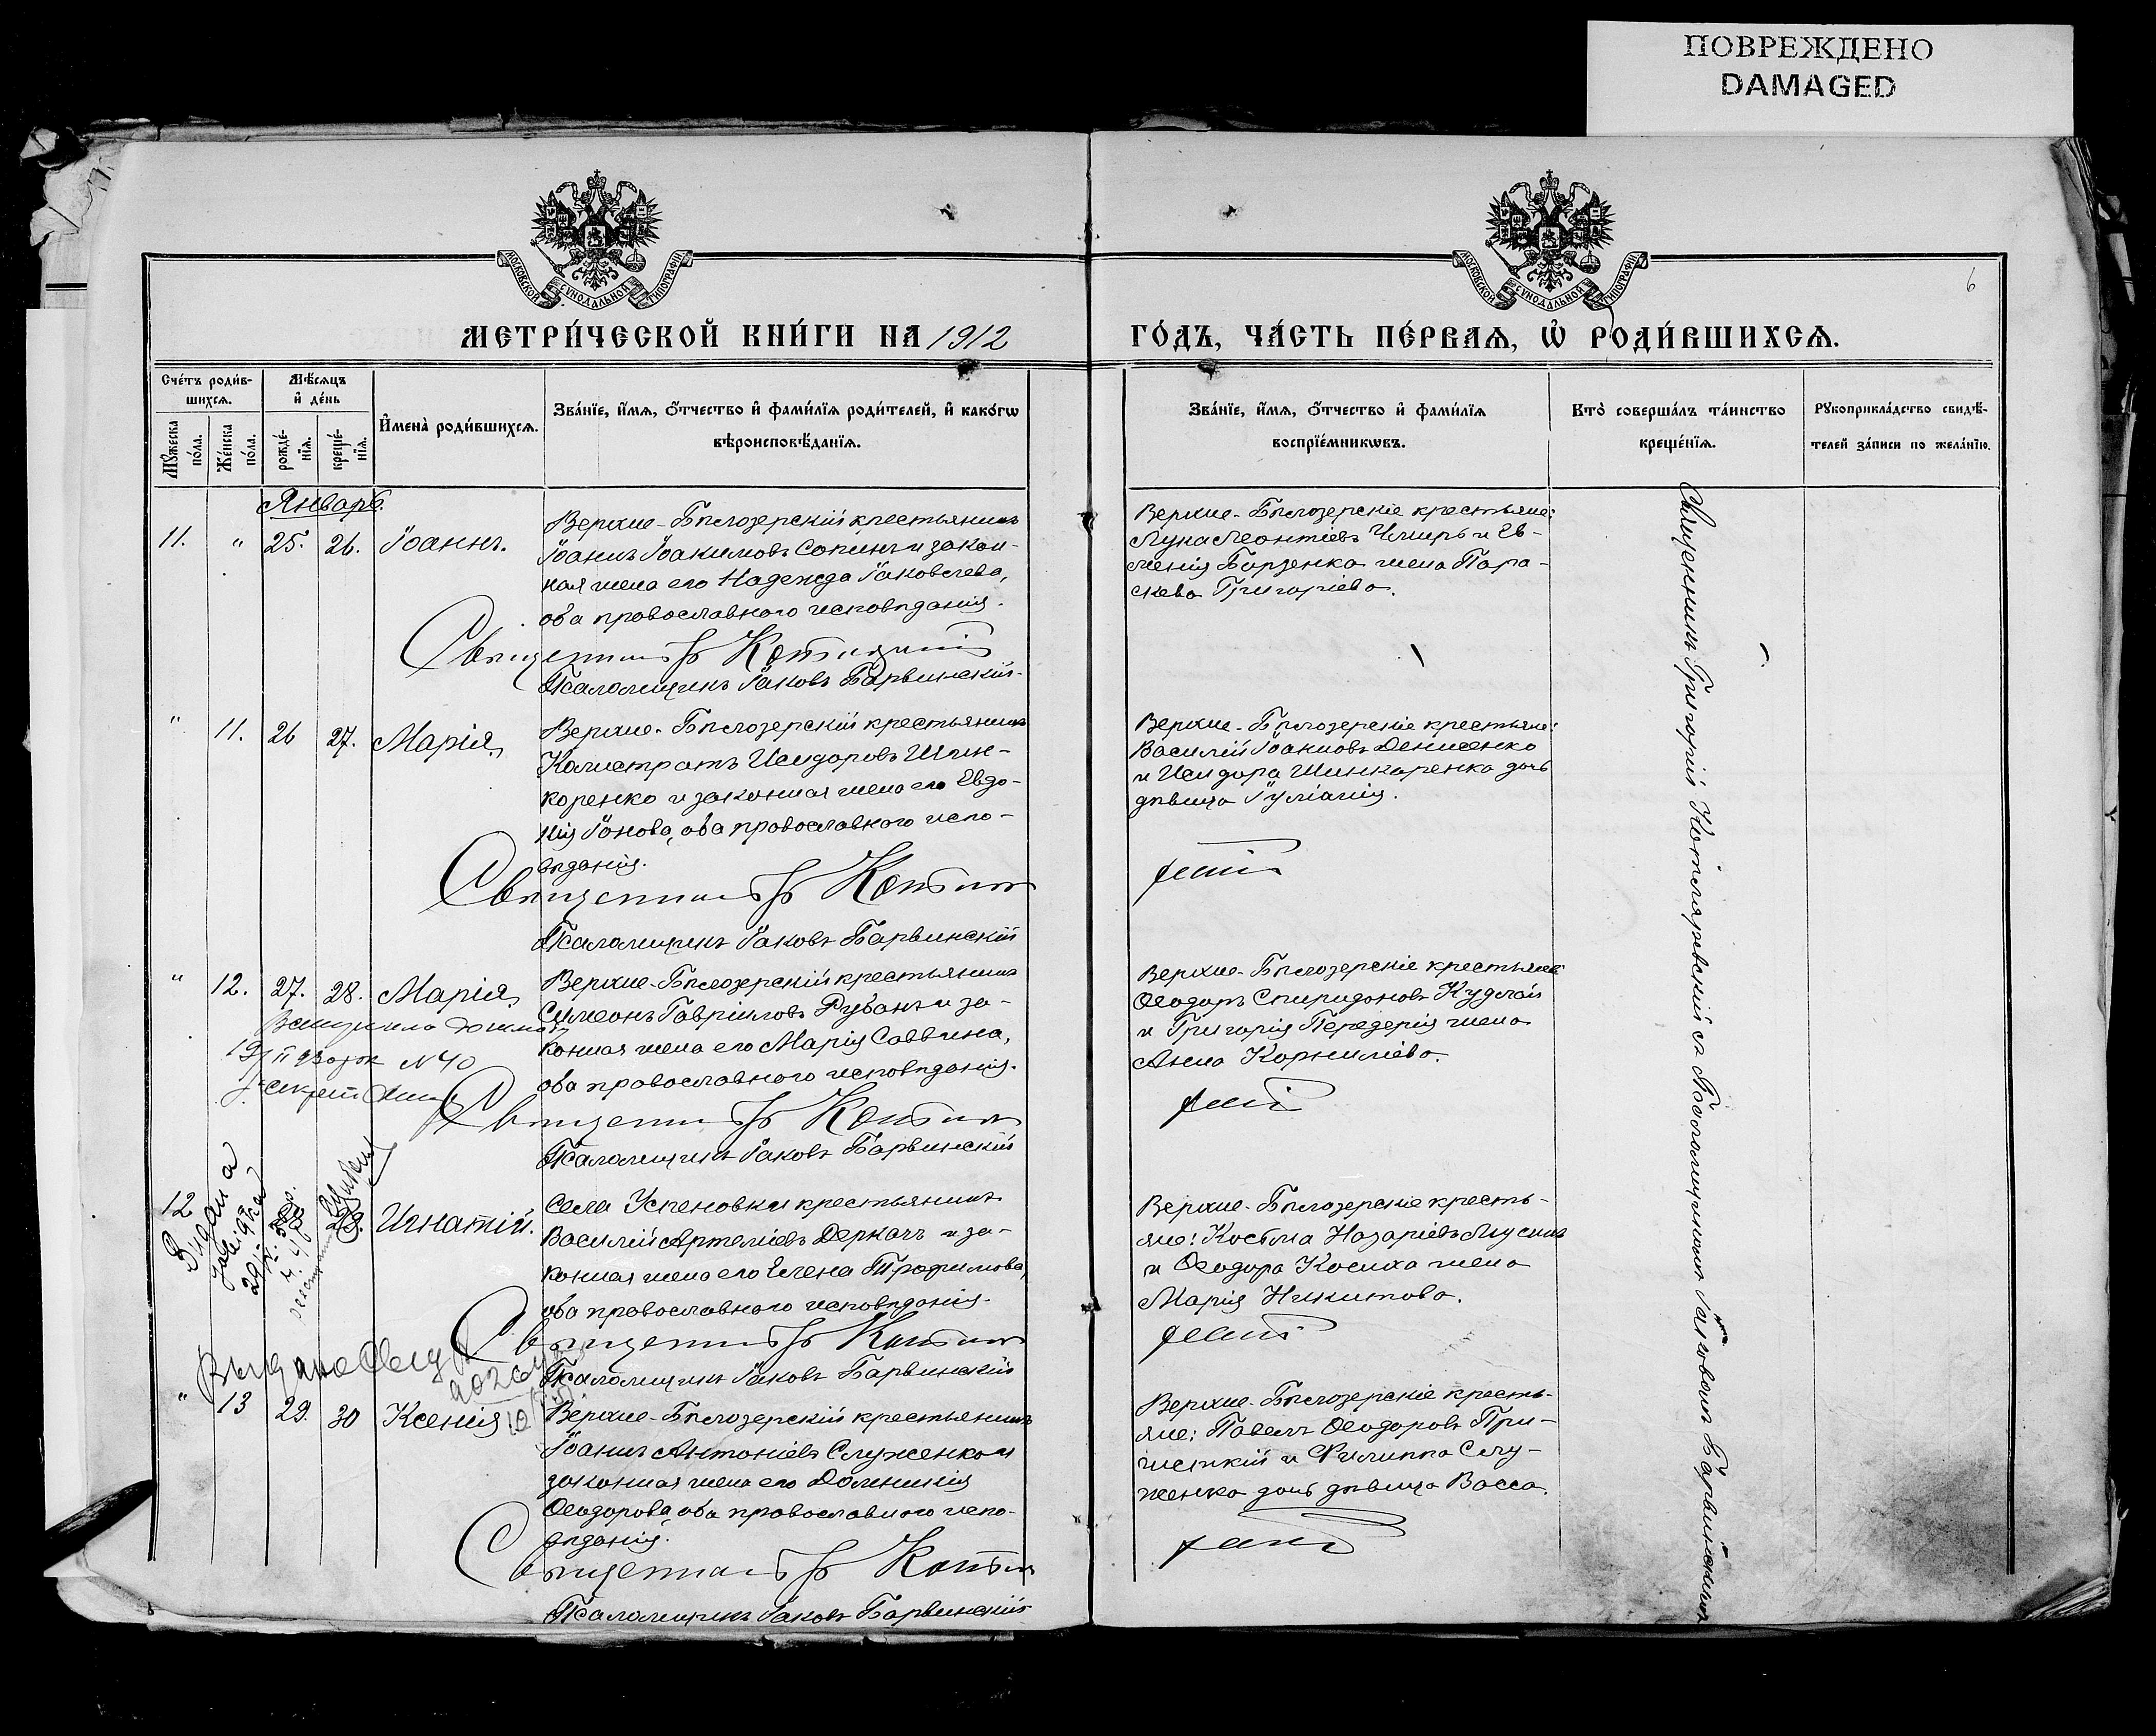 ПОВРЕЖДЕНО
DAMAGED
МОСКОВСКОЙ СѴНОДАЛЬНОЙ ТИПОГРАФІИ
МОСКОВСКОЙ СѴНОДАЛЬНОЙ ТИПОГРАФІИ
6
МЕТРИ́ЧЕСКОЙ КНИ́ГИ НА 1912
ГО́ДЪ, ЧА́СТЬ ПЕ́РВАѦ, Ѡ҆ РОДИ́ВШИХСѦ.
Сче́тъ роди́в-
шихсѧ.
Мѣ́сѧцъ
и҆ де́нь
Мꙋ́жеска
по́ла.
Же́нска
по́ла.
рожде́-
нїѧ.
креще́-
нїѧ.
И҆мена̀ роди́вшихсѧ.
Зва́нїе, и҆́мѧ, ѻ҆́тчество и҆ фами́лїѧ роди́телей, и҆ како́гѡ
вѣроисповѣ́данїѧ.
Зва́нїе, и҆́мѧ, ѻ҆́тчество и҆ фами́лїѧ
воспрїе́мникѡвъ.
Кто̀ соверша́лъ та́инство
креще́нїѧ.
Рꙋкоприкла́дство свидѣ́-
телей за́писи по жела́нїю.
Январь.
11. " 25. 26. Іоаннъ.
Верхне-Бѣлозерскій крестьянинъ
Іоаннъ Іоакимовъ Сопинъ и закон-
ная жена его Надежда Іаковлева,
оба православнаго исповѣданія.
Священникъ
Псаломщикъ Іаковъ Барвинскій.
Верхне-Бѣлозерскіе крестьяне:
Лука Леонтіевъ Чмиръ и Ев-
менія Борзенка жена Пара-
скева Григоріева.
" 11. 26 27. Марія
Верхне-Бѣлозерскій крестьянинъ
Калистратъ Исидоровъ Шин-
каренко и законная жена его Евдо-
кія Іонова, оба православнаго испо-
вѣданія.
Священникъ
Псаломщикъ Іаковъ Барвинскій
Верхне-Бѣлозерскіе крестьяне:
Василій Іоанновъ Денисенко
и Исидора Шинкаренка дочь
дѣвица Іуліанія.
" 12. 27. 28. Марія
Верхне-Бѣлозерскій крестьянинъ
Симеонъ Гавріиловъ Рубанъ и за-
конная жена его Марія Саввина,
оба православнаго исповѣданія.
Священникъ
Псаломщикъ Іаковъ Барвинскій
N 40
Верхне-Бѣлозерскіе крестьяне:
Ѳеодоръ Спиридоновъ Кудлай
и Григорія Передерія жена
Анна Корниліева.
12 Игнатій.
Села Успеновки крестьянинъ
Василій Артеміевъ Деркачъ и за-
конная жена его Елена Трофимова,
оба православнаго исповѣданія.
Священникъ
Псаломщикъ Іаковъ Барвинскій
Верхне-Бѣлозерскіе кресть-
яне: Косьма Назаріевъ
и Ѳеодора Косиха жена
Марія Никитова.
" 13 29. 30 Ксенія
Верхне-Бѣлозерскій крестьянинъ
Іоаннъ Антоніевъ Служенко и
законная жена его Домникія
Ѳеодорова, оба православнаго испо-
вѣданія.
Священникъ
Псаломщикъ Іаковъ Барвинскій
Верхне-Бѣлозерскіе кресть-
яне: Павелъ Ѳеодоровъ При-
и Филиппа Слу-
женка дочь дѣвица Васса.
Священникъ Григорій Котляревскій съ Псаломщикомъ Іаковомъ Барвинскимъ